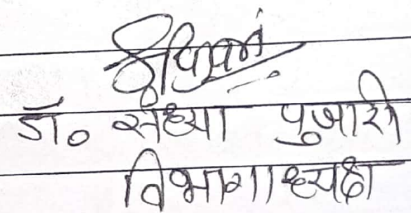 डॉ० संध्या पुजारी
विभागाध्यक्ष